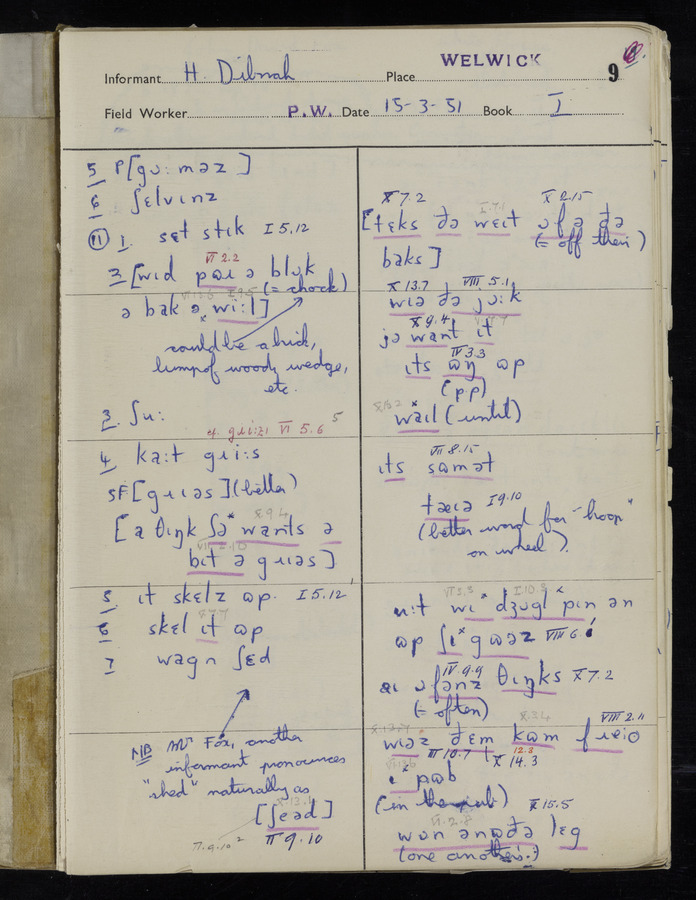 WELWICK
Informant H. Dibnah Place 9
Field Worker P.W. Date 15-3-51 Book I
5 P[gu:məz]
6 ʃɛlvɪnz
(11) 1. sɛt stɪk I 5,12
VI 2.2
2 [wɪd pɷɪ ə blɷk
(= chock)
ə bak ə wi:l]
could be a brick,
lump of wood, wedge,
etc.
3. ʃu: 5
cf. VI 5.6
4 ka:t gɹi:s
SF [gɹɪəs] (better)
[a θɪŋk ʃə wants ə
bɪt ə gɹɪəs]
5 ɪt skɛlz ɷp. I 5.12
6 skɛl ɪt ɷp
7 wagn ʃɛd
NB Mr Fox, another
informant pronounces
"shed" naturally as
[ʃeəd]
II 9.10
X 7.2 X 2.15
[tɛks ðə wɛɪt ɔf ə ðə
(= off their)
baks]
X 13.7 VIII 5.1
wɪə ðə jɔ:k
X 9.4
jə want ɪt
IV 3.3
ɪts ɷŋ ɷp
(pp)
waɪl (until)
VII 8.15
ɪts sɷmət
taɛɪə I 9.10
(better word for "hoop"
on wheel).
u:t wɪ dʒɷgl pɪn ən
ɷp ʃɪ gɷəz VIII 6
IV 9.9
aɪ ɔfənz θɪŋks X 7.2
(= often)
VIII 2.11
wɪəz ðɛm kɷm fɹɛɪə
II 10.7 X 14.3
ɪ pɷb
(in the pub) X 15.5
wɷn ənɷðə lɛg
(one another's.)